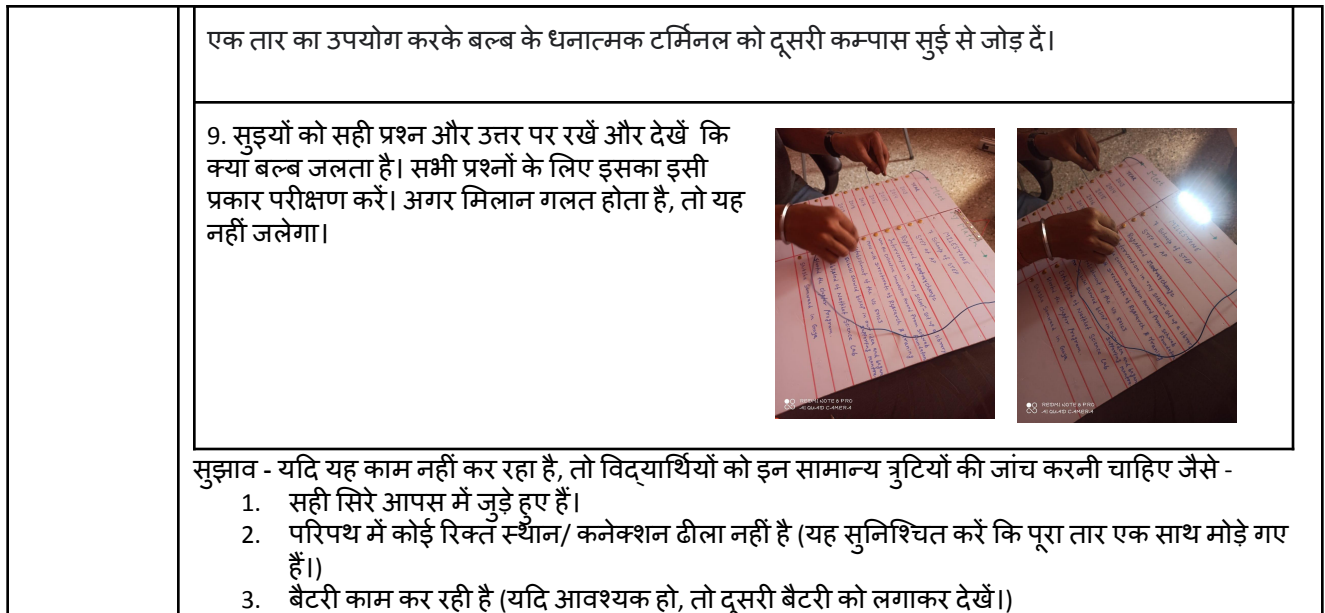 एक तार का उपयोग करके बल्ब के धनात्मक टर्मिनल को दूसरी कम्पास सुई से जोड़ दें।
9. सुइयों को सही प्रश्न और उत्तर पर रखें और देखें कि
क्या बल्ब जलता है। सभी प्रश्नों के लिए इसका इसी
प्रकार परीक्षण करें। अगर मिलान गलत होता है, तो यह
नहीं जलेगा।
REDMI NOTE 6 PRO
AI QUAD CAMERA
REDMI NOTE 6 PRO
AI QUAD CAMERA
सुझाव - यदि यह काम नहीं कर रहा है, तो विद्यार्थियों को इन सामान्य त्रुटियों की जांच करनी चाहिए जैसे -
1. सही सिरे आपस में जुड़े हुए हैं।
2. परिपथ में कोई रिक्त स्थान/ कनेक्शन ढीला नहीं है (यह सुनिश्चित करें कि पूरा तार एक साथ मोड़े गए
हैं।)
3. बैटरी काम कर रही है (यदि आवश्यक हो, तो दूसरी बैटरी को लगाकर देखें।)